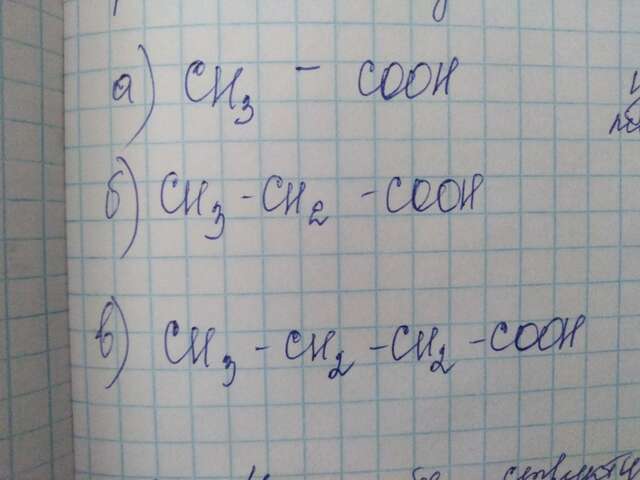 а) CH3 - COOH
б) CH3 - CH2 - COOH
в) CH3 - CH2 - CH2 - COOH